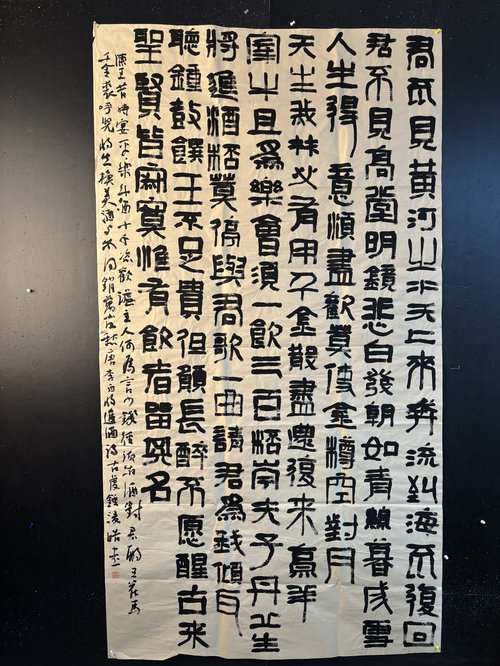 君不見黃河之水天上來奔流到海不復回
君不見高堂明鏡悲白發朝如青絲暮成雪
人生得意須盡歡莫使金樽空對月
天生我材必有用千金散盡還復來烹羊
宰牛且為樂會須一飲三百桮岑夫子丹丘生
將進酒桮莫停與君歌一曲請君為我傾耳
聽鐘鼓饌玉不足貴但願長醉不愿醒古來
聖賢皆寂寞惟有飲者留其名
陳王昔時宴平樂斗酒十千恣歡謔主人何為言少錢徑須沽酒對君酌五花馬
千金裘呼兒將出換美酒與爾同銷萬古愁唐李白將進酒詩古虞